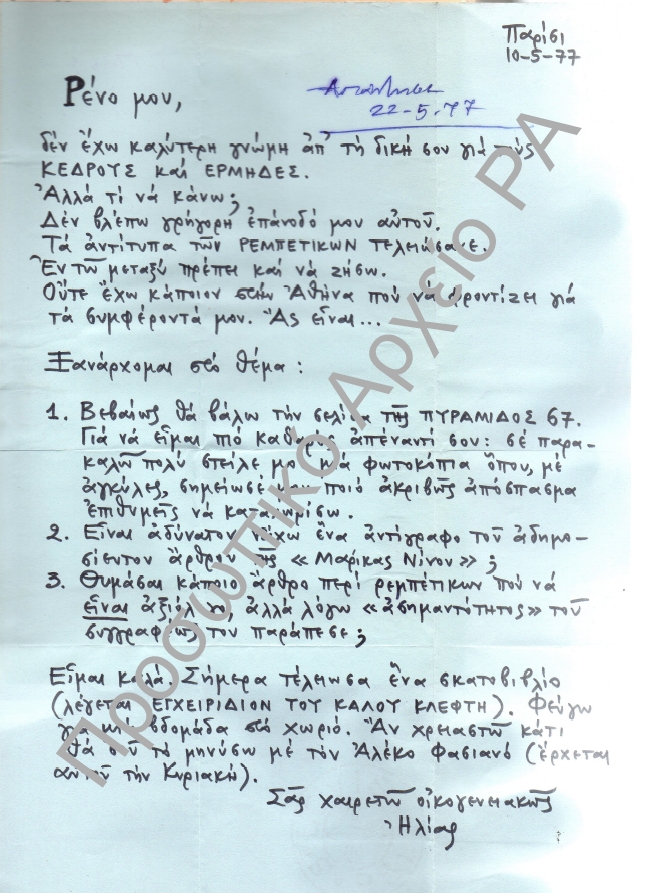 Παρίσι
10-5-77
Ρένο μου,
Απάντησα
22-5-77
δέν ἔχω καλύτερη γνώμη ἀπ' τή δική σου γιά τούς
ΚΕΔΡΟΥΣ καί ΕΡΜΗΔΕΣ.
Ἀλλά τί νά κάνω;
Δέν βλέπω γρήγορη ἐπάνοδό μου αὐτοῦ.
Τά ἀντίτυπα τῶν ΡΕΜΠΕΤΙΚΩΝ τελειώσανε.
Ἐν τῶ μεταξύ πρέπει καί νά ζήσω.
Οὔτε ἔχω κάποιον στήν Ἀθήνα πού νά φροντίζει γιά
τά συμφέροντά μου. Ἄς εἶναι...
Ξανάρχομαι στό θέμα:
1. Βεβαίως θά βάλω τήν σελίδα τῆς ΠΥΡΑΜΙΔΟΣ 67.
Γιά νά εἶμαι πιό καθαρός ἀπέναντί σου: σέ παρα-
καλῶ πολύ στεῖλε μου μιά φωτοκόπια ὅπου, μέ
ἀγκύλες, σημείωσέ μου ποιό ἀκριβῶς ἀπόσπασμα
ἐπιθυμεῖς νά καταχωρίσω.
2. Εἶναι ἀδύνατον νἄχω ἕνα ἀντίγραφο τοῦ ἀδημο-
σίευτου ἄρθρου τῆς «Μαρίκας Νίνου»;
3. Θυμᾶσαι κάποιο ἄρθρο περί ρεμπέτικων πού νά
εἶναι ἀξιόλογο, ἀλλά λόγω «ἀσημαντότητος» τοῦ
συγγραφέως του παράπεσε;
Εἶμαι καλά. Σήμερα τέλειωσα ἕνα σκατοβιβλίο
(λέγεται ΕΓΧΕΙΡΙΔΙΟΝ ΤΟΥ ΚΑΛΟΥ ΚΛΕΦΤΗ). Φεύγω
γιά μιά βδομάδα στό χωριό. Ἄν χρειαστῶ κάτι
θά σοῦ τό μηνύσω μέ τόν Ἀλέκο Φασιανό (ἔρχεται
αὐτοῦ τήν Κυριακή).
Σᾶς χαιρετῶ οἰκογενειακῶς
Ἠλίας
Προσωπικό Αρχείο ΡΑ